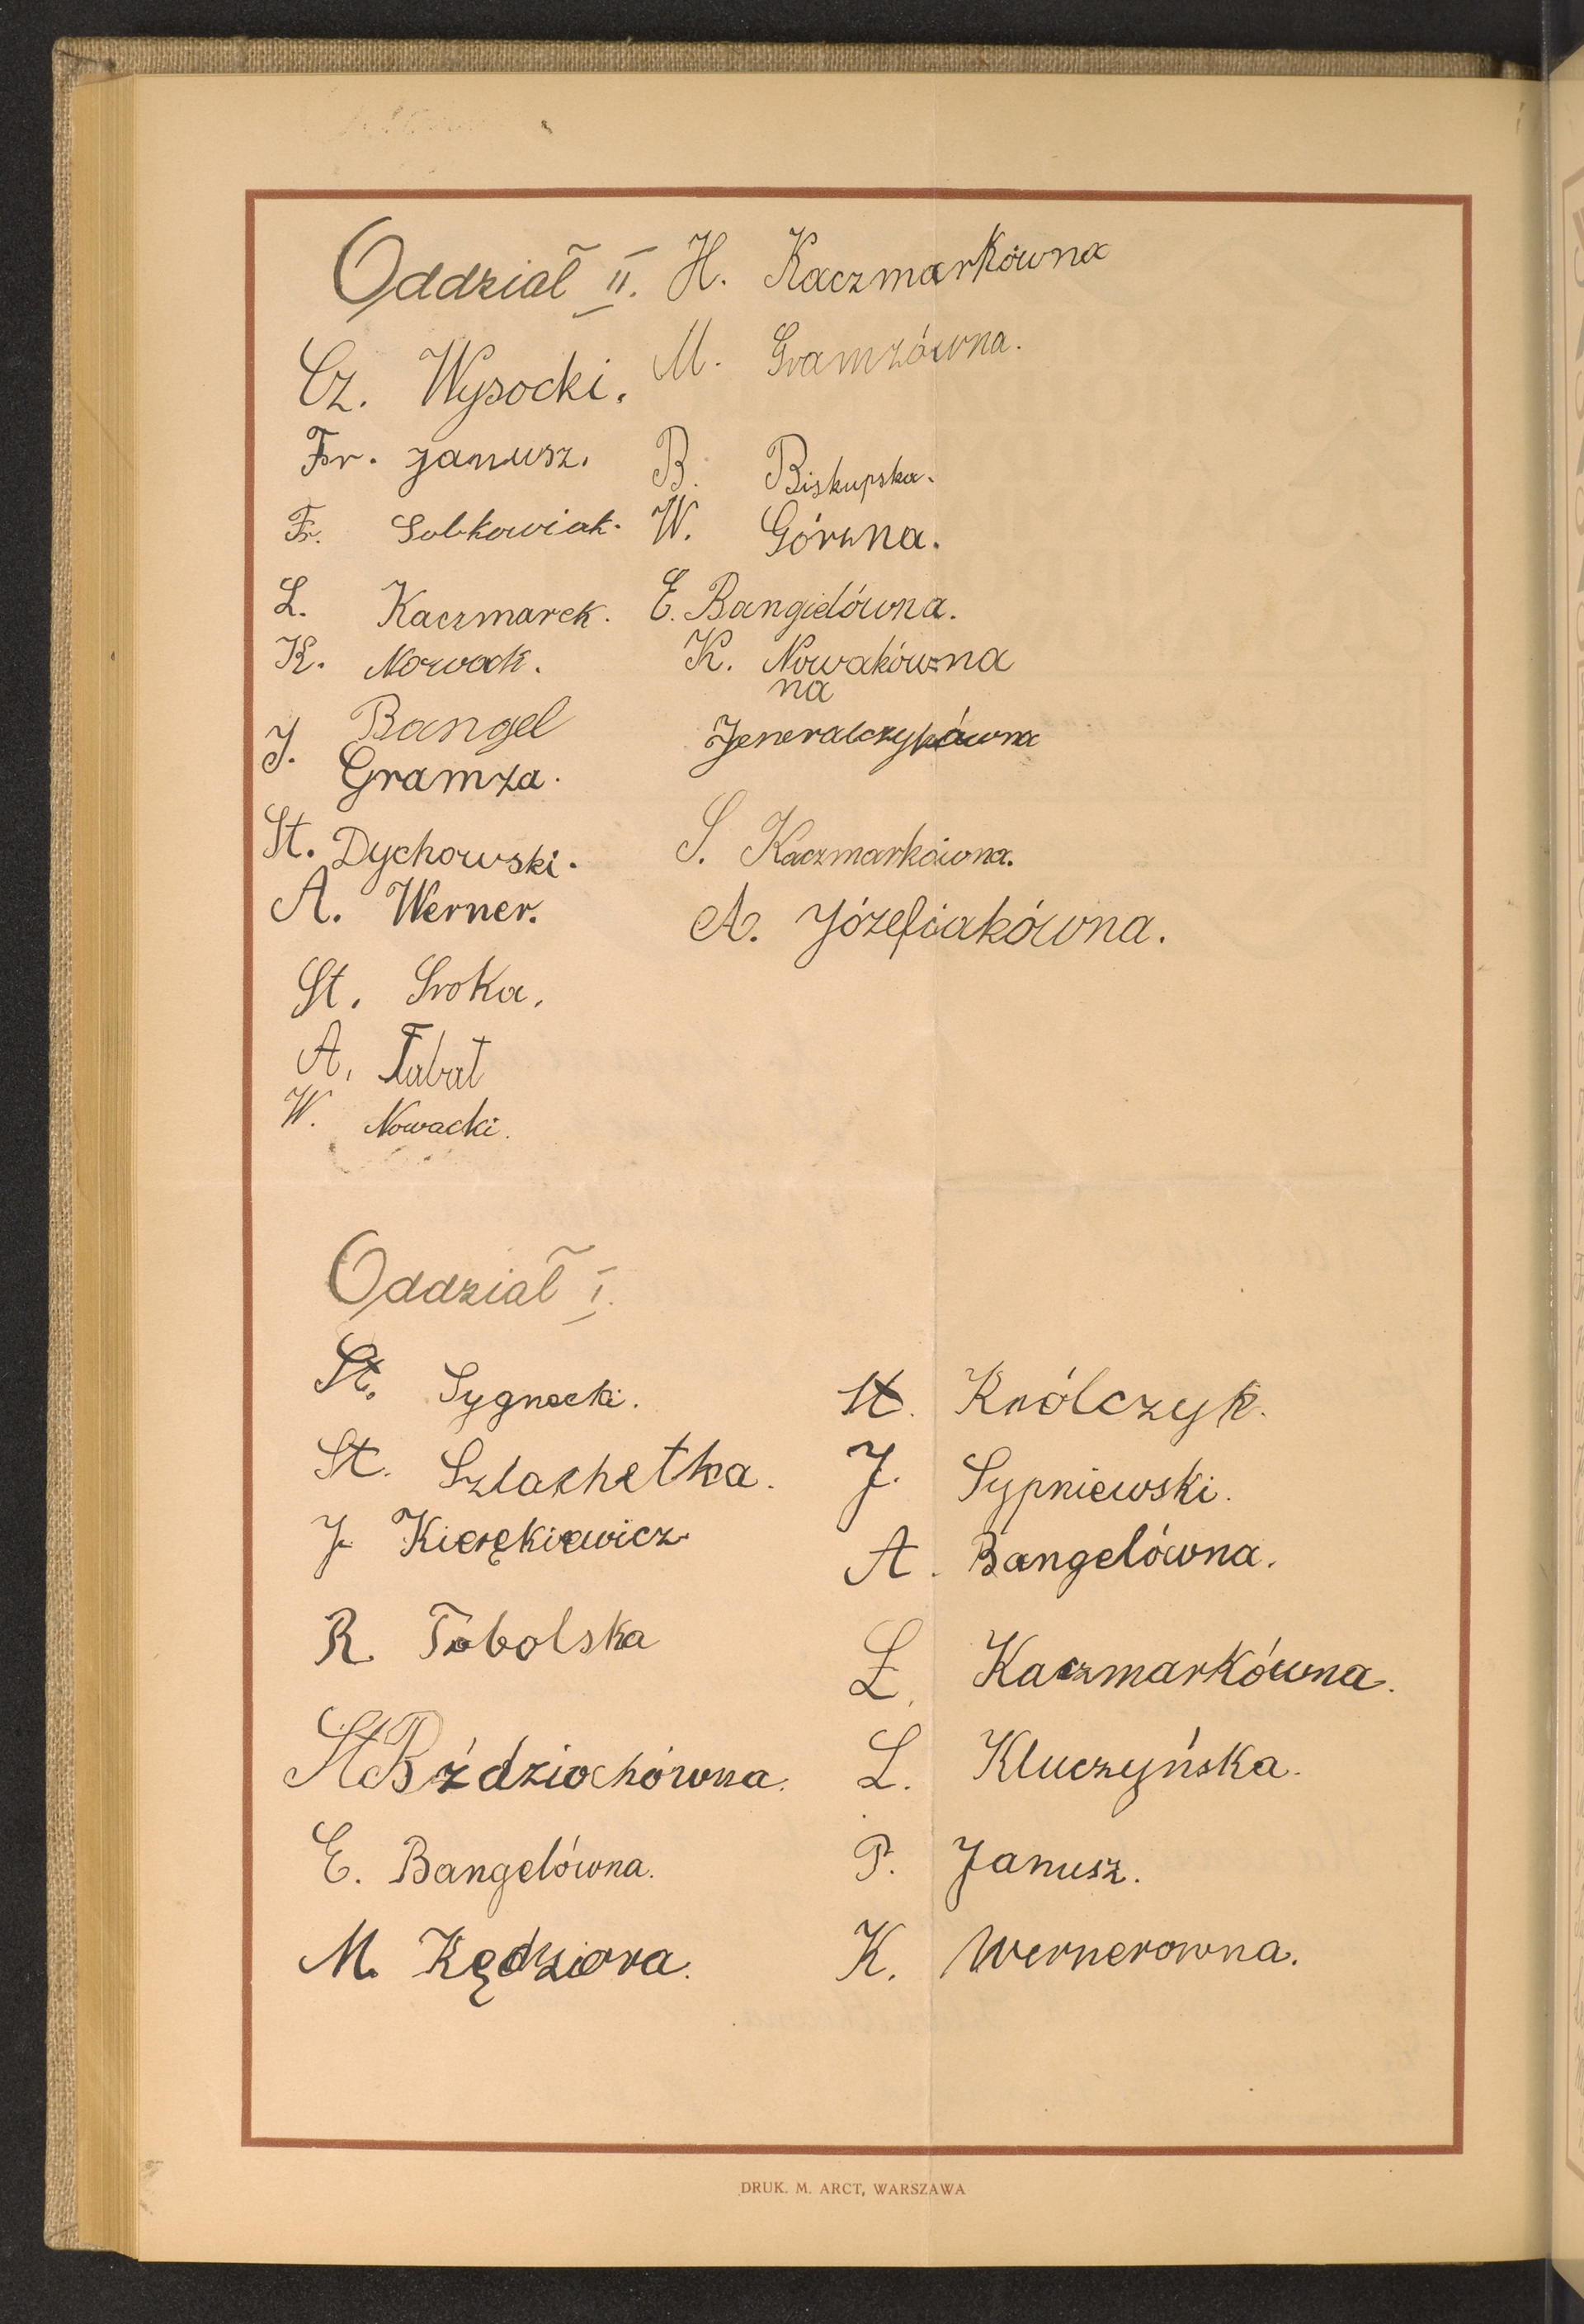 Oddział II.
Cz. Wysocki.
Fr. Janusz.
Fr. Sobkowiak.
L. Kaczmarek.
K. Nowak.
Bangel
J. Gramza.
St. Dychowski.
A. Werner.
St. Sroka.
A. Tabat
W. Nowacki.
H. Kaczmarkówna
M. Gramzówna.
B. Biskupska.
W. Górna.
E. Bangielówna.
K. Nowakówna
na
Jeneralczykówna
S. Kaczmarkówna.
A. Józefiakówna.
Oddział I.
St. Sygnecki.
St. Szlachetka.
J. Kierękiewicz
R. Tobolska
St Bździochówna.
E. Bangelówna.
M. Kędziora.
St. Królczyk.
J. Sypniewski.
A. Bangelówna.
Ł. Kaczmarkówna.
L. Kluczyńska.
P. Janusz.
K. Wernerowna.
DRUK. M. ARCT, WARSZAWA